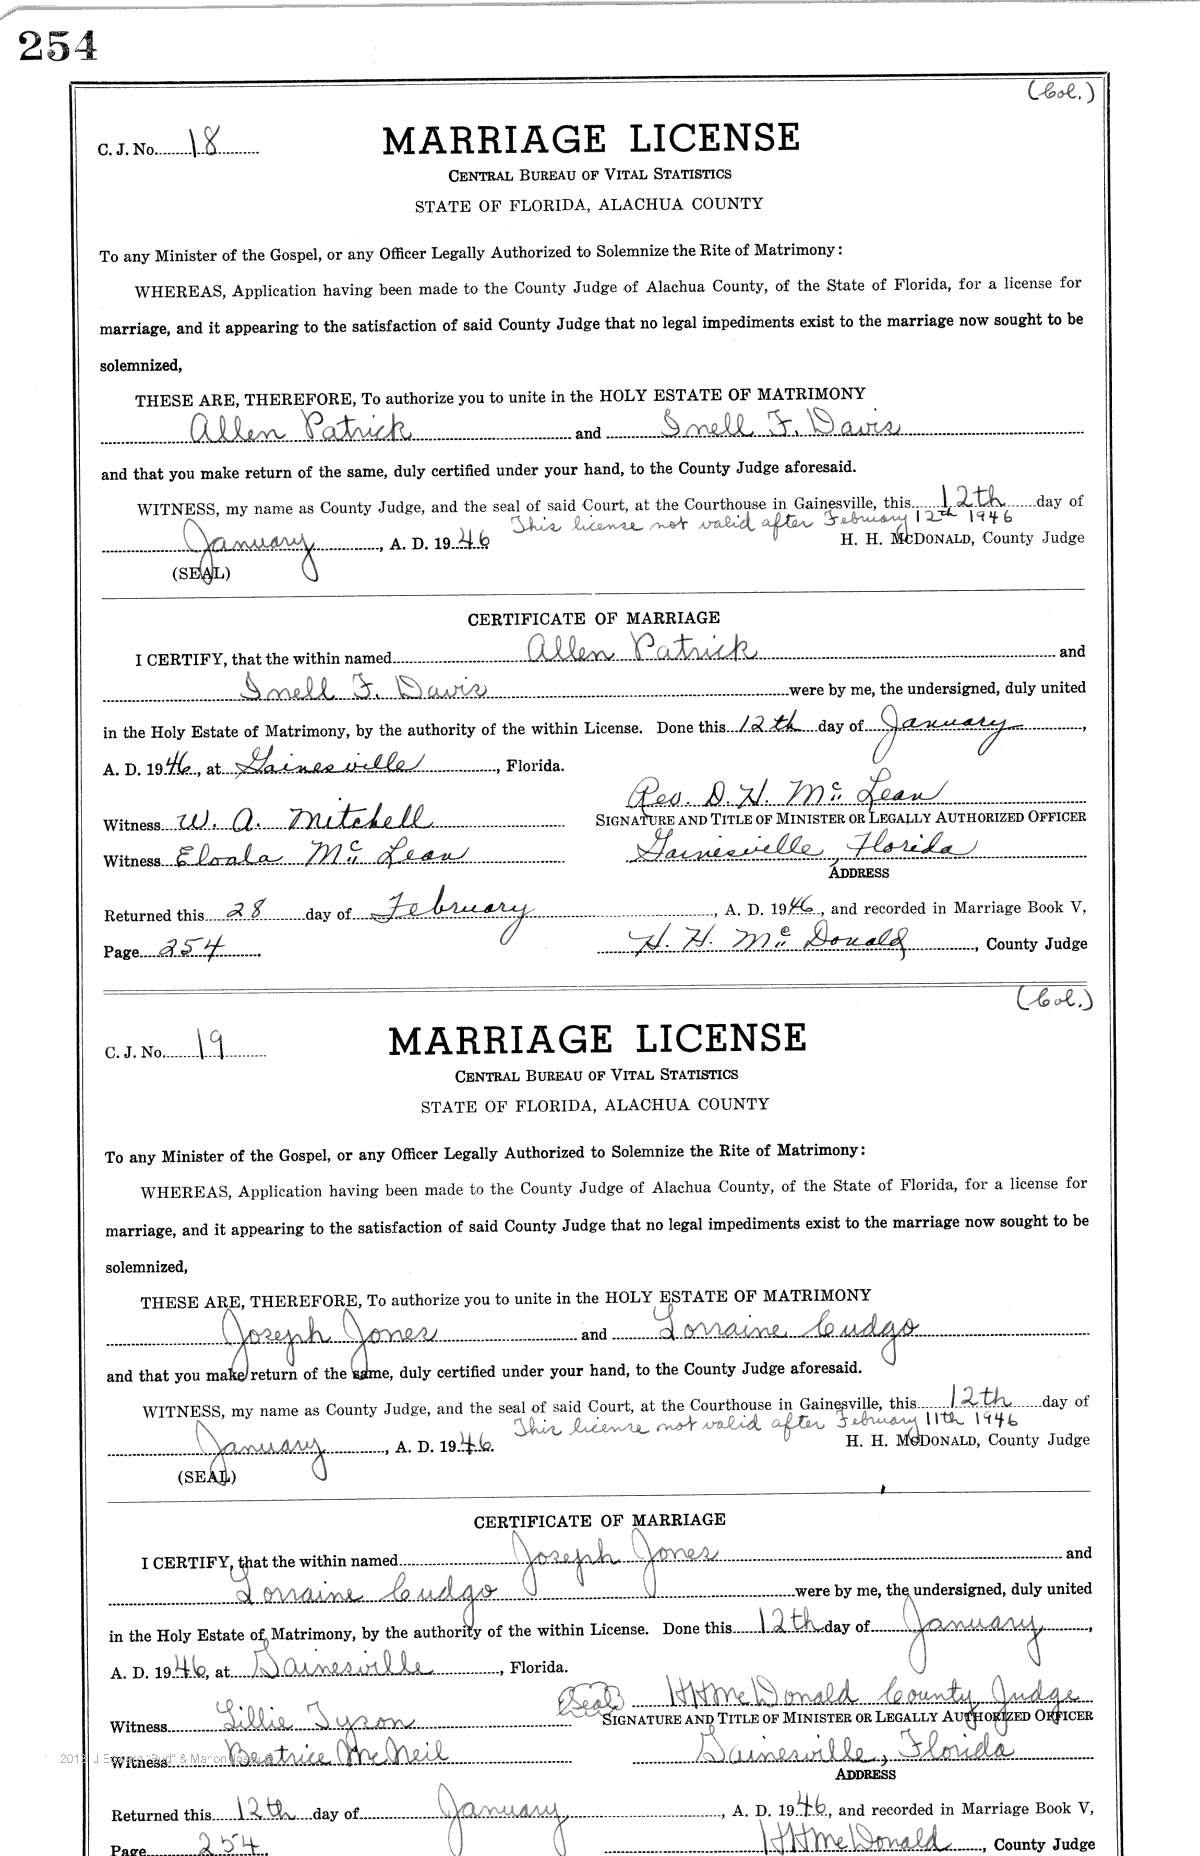 254
(Col.)
C. J. No. 18
MARRIAGE LICENSE
CENTRAL BUREAU OF VITAL STATISTICS
STATE OF FLORIDA, ALACHUA COUNTY
To any Minister of the Gospel, or any Officer Legally Authorized to Solemnize the Rite of Matrimony:
WHEREAS, Application having been made to the County Judge of Alachua County, of the State of Florida, for a license for
marriage, and it appearing to the satisfaction of said County Judge that no legal impediments exist to the marriage now sought to be
solemnized,
THESE ARE, THEREFORE, To authorize you to unite in the HOLY ESTATE OF MATRIMONY
Allen Patrick and Inell F. Davis
and that you make return of the same, duly certified under your hand, to the County Judge aforesaid.
WITNESS, my name as County Judge, and the seal of said Court, at the Courthouse in Gainesville, this 12th day of
This license not valid after February 12th 1946
January, A. D. 1946 H. H. McDONALD, County Judge
(SEAL)
CERTIFICATE OF MARRIAGE
I CERTIFY, that the within named Allen Patrick and
Inell F. Davis were by me, the undersigned, duly united
in the Holy Estate of Matrimony, by the authority of the within License. Done this 12th day of January,
A. D. 1946, at Gainesville, Florida.
Rev. D. H. McLean
Witness W. A. Mitchell SIGNATURE AND TITLE OF MINISTER OR LEGALLY AUTHORIZED OFFICER
Witness Eloala McLean Gainesville, Florida
ADDRESS
Returned this 28 day of February, A. D. 1946, and recorded in Marriage Book V,
Page 254. H. H. McDonald, County Judge
(Col.)
C. J. No. 19
MARRIAGE LICENSE
CENTRAL BUREAU OF VITAL STATISTICS
STATE OF FLORIDA, ALACHUA COUNTY
To any Minister of the Gospel, or any Officer Legally Authorized to Solemnize the Rite of Matrimony:
WHEREAS, Application having been made to the County Judge of Alachua County, of the State of Florida, for a license for
marriage, and it appearing to the satisfaction of said County Judge that no legal impediments exist to the marriage now sought to be
solemnized,
THESE ARE, THEREFORE, To authorize you to unite in the HOLY ESTATE OF MATRIMONY
Joseph Jones and Lorraine Cudgo
and that you make return of the same, duly certified under your hand, to the County Judge aforesaid.
WITNESS, my name as County Judge, and the seal of said Court, at the Courthouse in Gainesville, this 12th day of
This license not valid after February 11th 1946
January, A. D. 1946. H. H. McDONALD, County Judge
(SEAL)
CERTIFICATE OF MARRIAGE
I CERTIFY, that the within named Joseph Jones and
Lorraine Cudgo were by me, the undersigned, duly united
in the Holy Estate of Matrimony, by the authority of the within License. Done this 12th day of January,
A. D. 1946, at Gainesville, Florida.
(Seal) HHMcDonald County Judge
Witness Lillie Tyson SIGNATURE AND TITLE OF MINISTER OR LEGALLY AUTHORIZED OFFICER
Witness Beatrice McNeil Gainesville, Florida
ADDRESS
Returned this 12th day of January, A. D. 1946, and recorded in Marriage Book V,
Page 254. HHMcDonald, County Judge